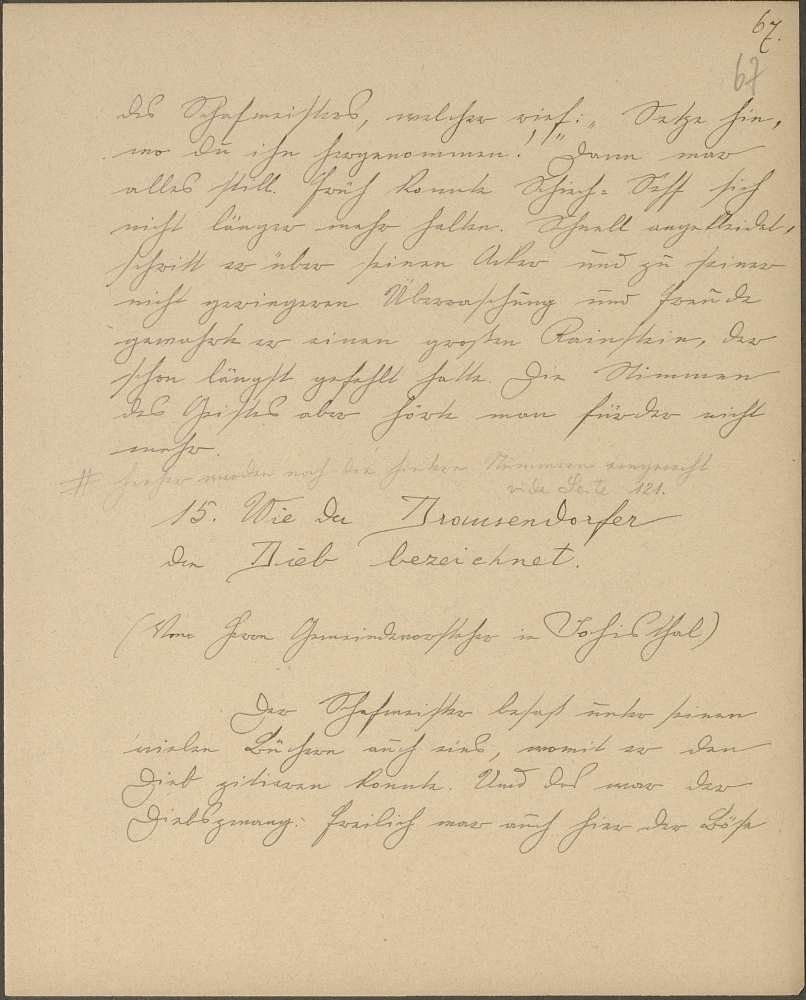 67.
67
des Schafmeisters, welcher rief: „Setze hin,
wo du ihn hergenommen!" Dann war
alles still. Früh konnte Schech-Seff sich
nicht länger mehr halten. Schnell angekleidet,
schritt er über seinen Acker und zu seiner
nicht geringeren Überraschung und Freude
gewahrte er einen großen Rainstein, der
schon längst gefehlt hatte. Die Stimmen
des Geistes aber hörte man fürder nicht
mehr.
# hierher werden noch die Stimmen eingereiht
vide Seite 121.
15. Wie der Brausendorfer
den Dieb bezeichnet.
(Vom Herrn Gemeindevorsteher in Johisthal)
Der Schafmeister besaß unter seinen
vielen Büchern auch eines, womit er den
Dieb zitieren konnte. Und das war der
Diebszwang. Freilich war auch hier der Böse